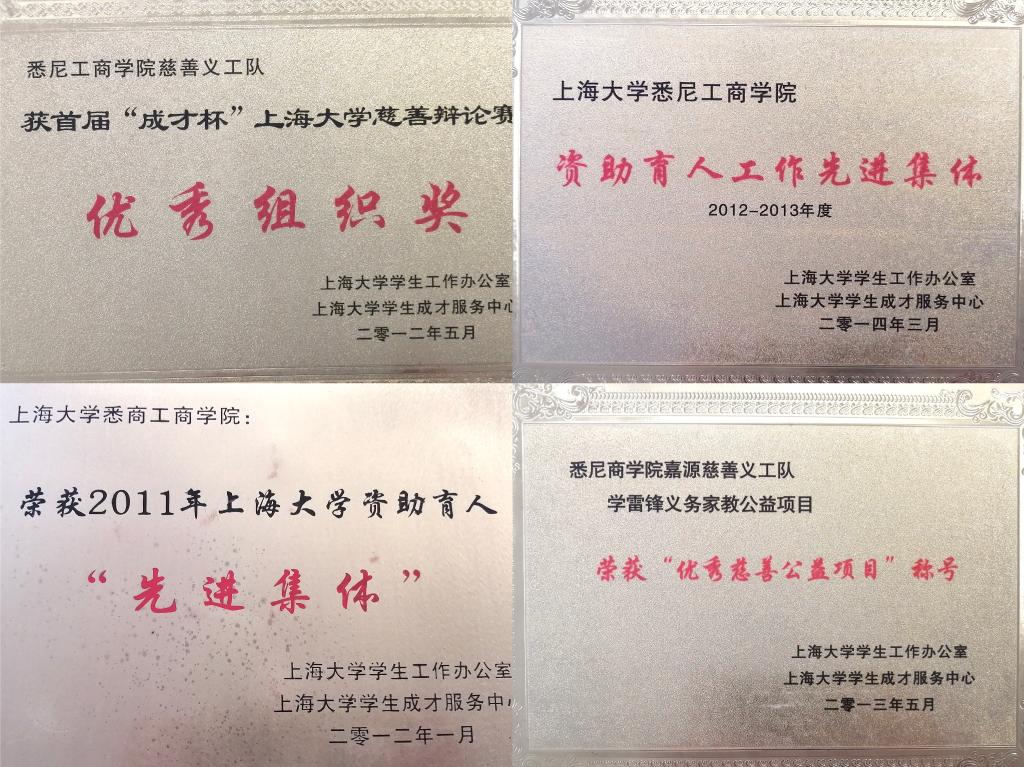 悉尼工商学院慈善义工队
获首届“成才杯”上海大学慈善辩论赛
优秀组织奖
上海大学学生工作办公室
上海大学学生成才服务中心
二零一二年五月
上海大学悉尼工商学院
资助育人工作先进集体
2012-2013年度
上海大学学生工作办公室
上海大学学生成才服务中心
二零一四年三月
上海大学悉商工商学院：
荣获2011年上海大学资助育人
“先进集体”
上海大学学生工作办公室
上海大学学生成才服务中
二零一二年一月
悉尼商学院嘉源慈善义工队
学雷锋义务家教公益项目
荣获“优秀慈善公益项目”称号
上海大学学生工作办公室
上海大学学生成才服务中心
二零一三年五月